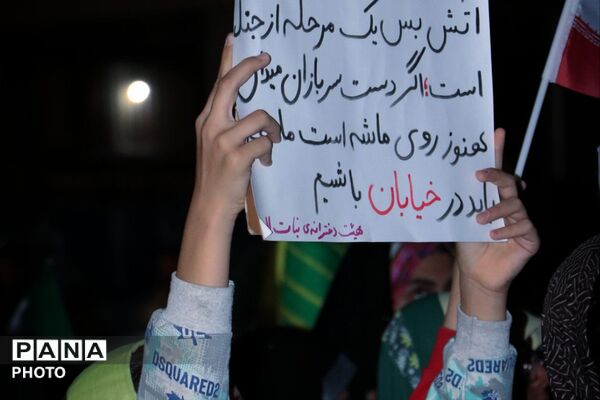 آتش بس یک مرحله از جنگ
است؛ اگر دست سربازان میدان
هنوز روی ماشه است ما
باید در خیابان باشیم
هیئت دخترانه‌ی بنات ال
DSQUARED2
DSQUARED2
PANA
PHOTO